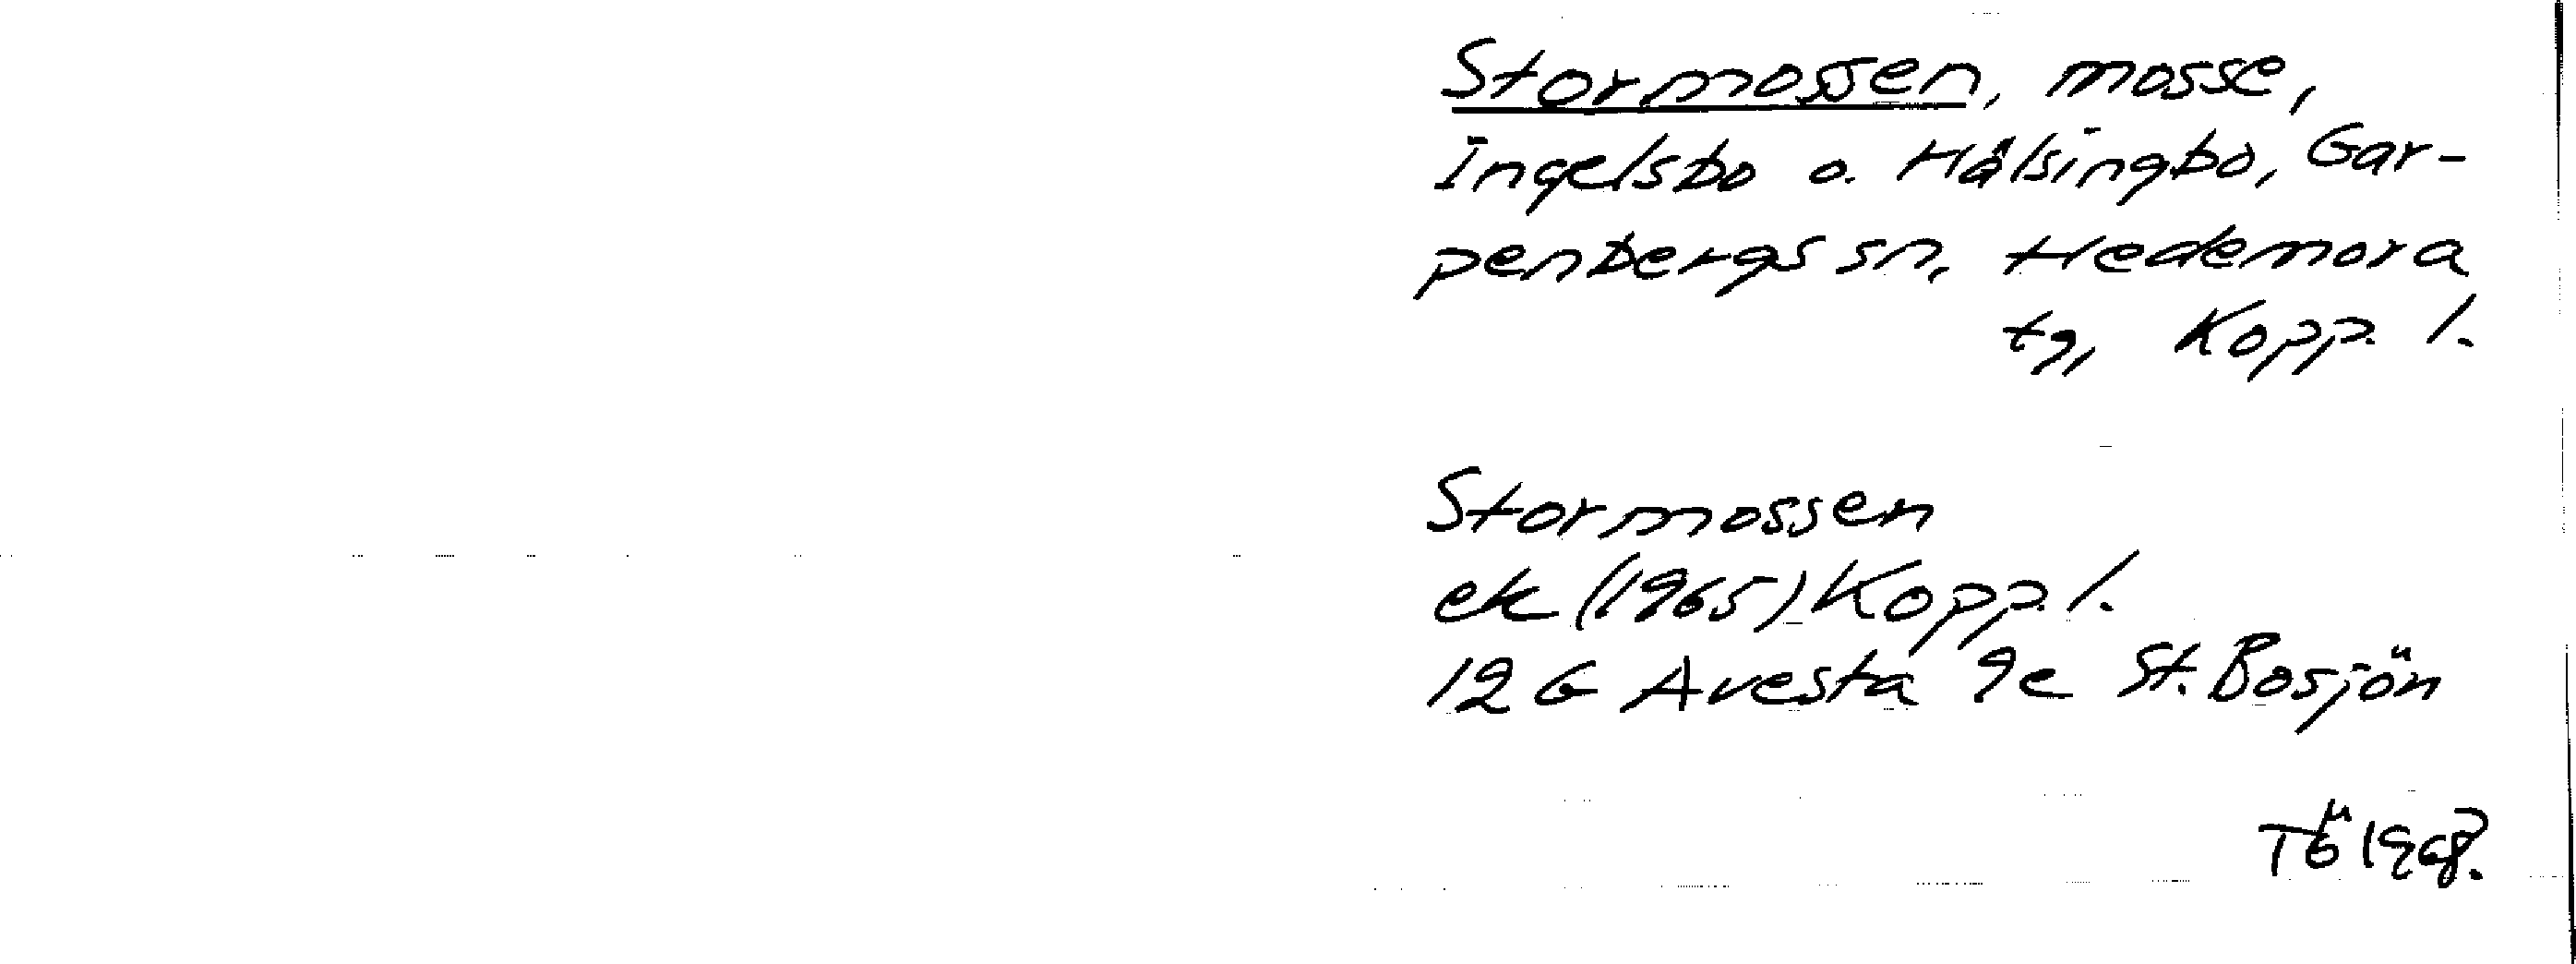 Stormossen, mosse,
Ingelsbo o. Hälsingbo, Gar-
penbergs sn, Hedemora
tg, Kopp. l.
Stormossen
ek (1965) Kopp. l.
12 G Avesta 9e St. Bosjön
TÖ 1968.